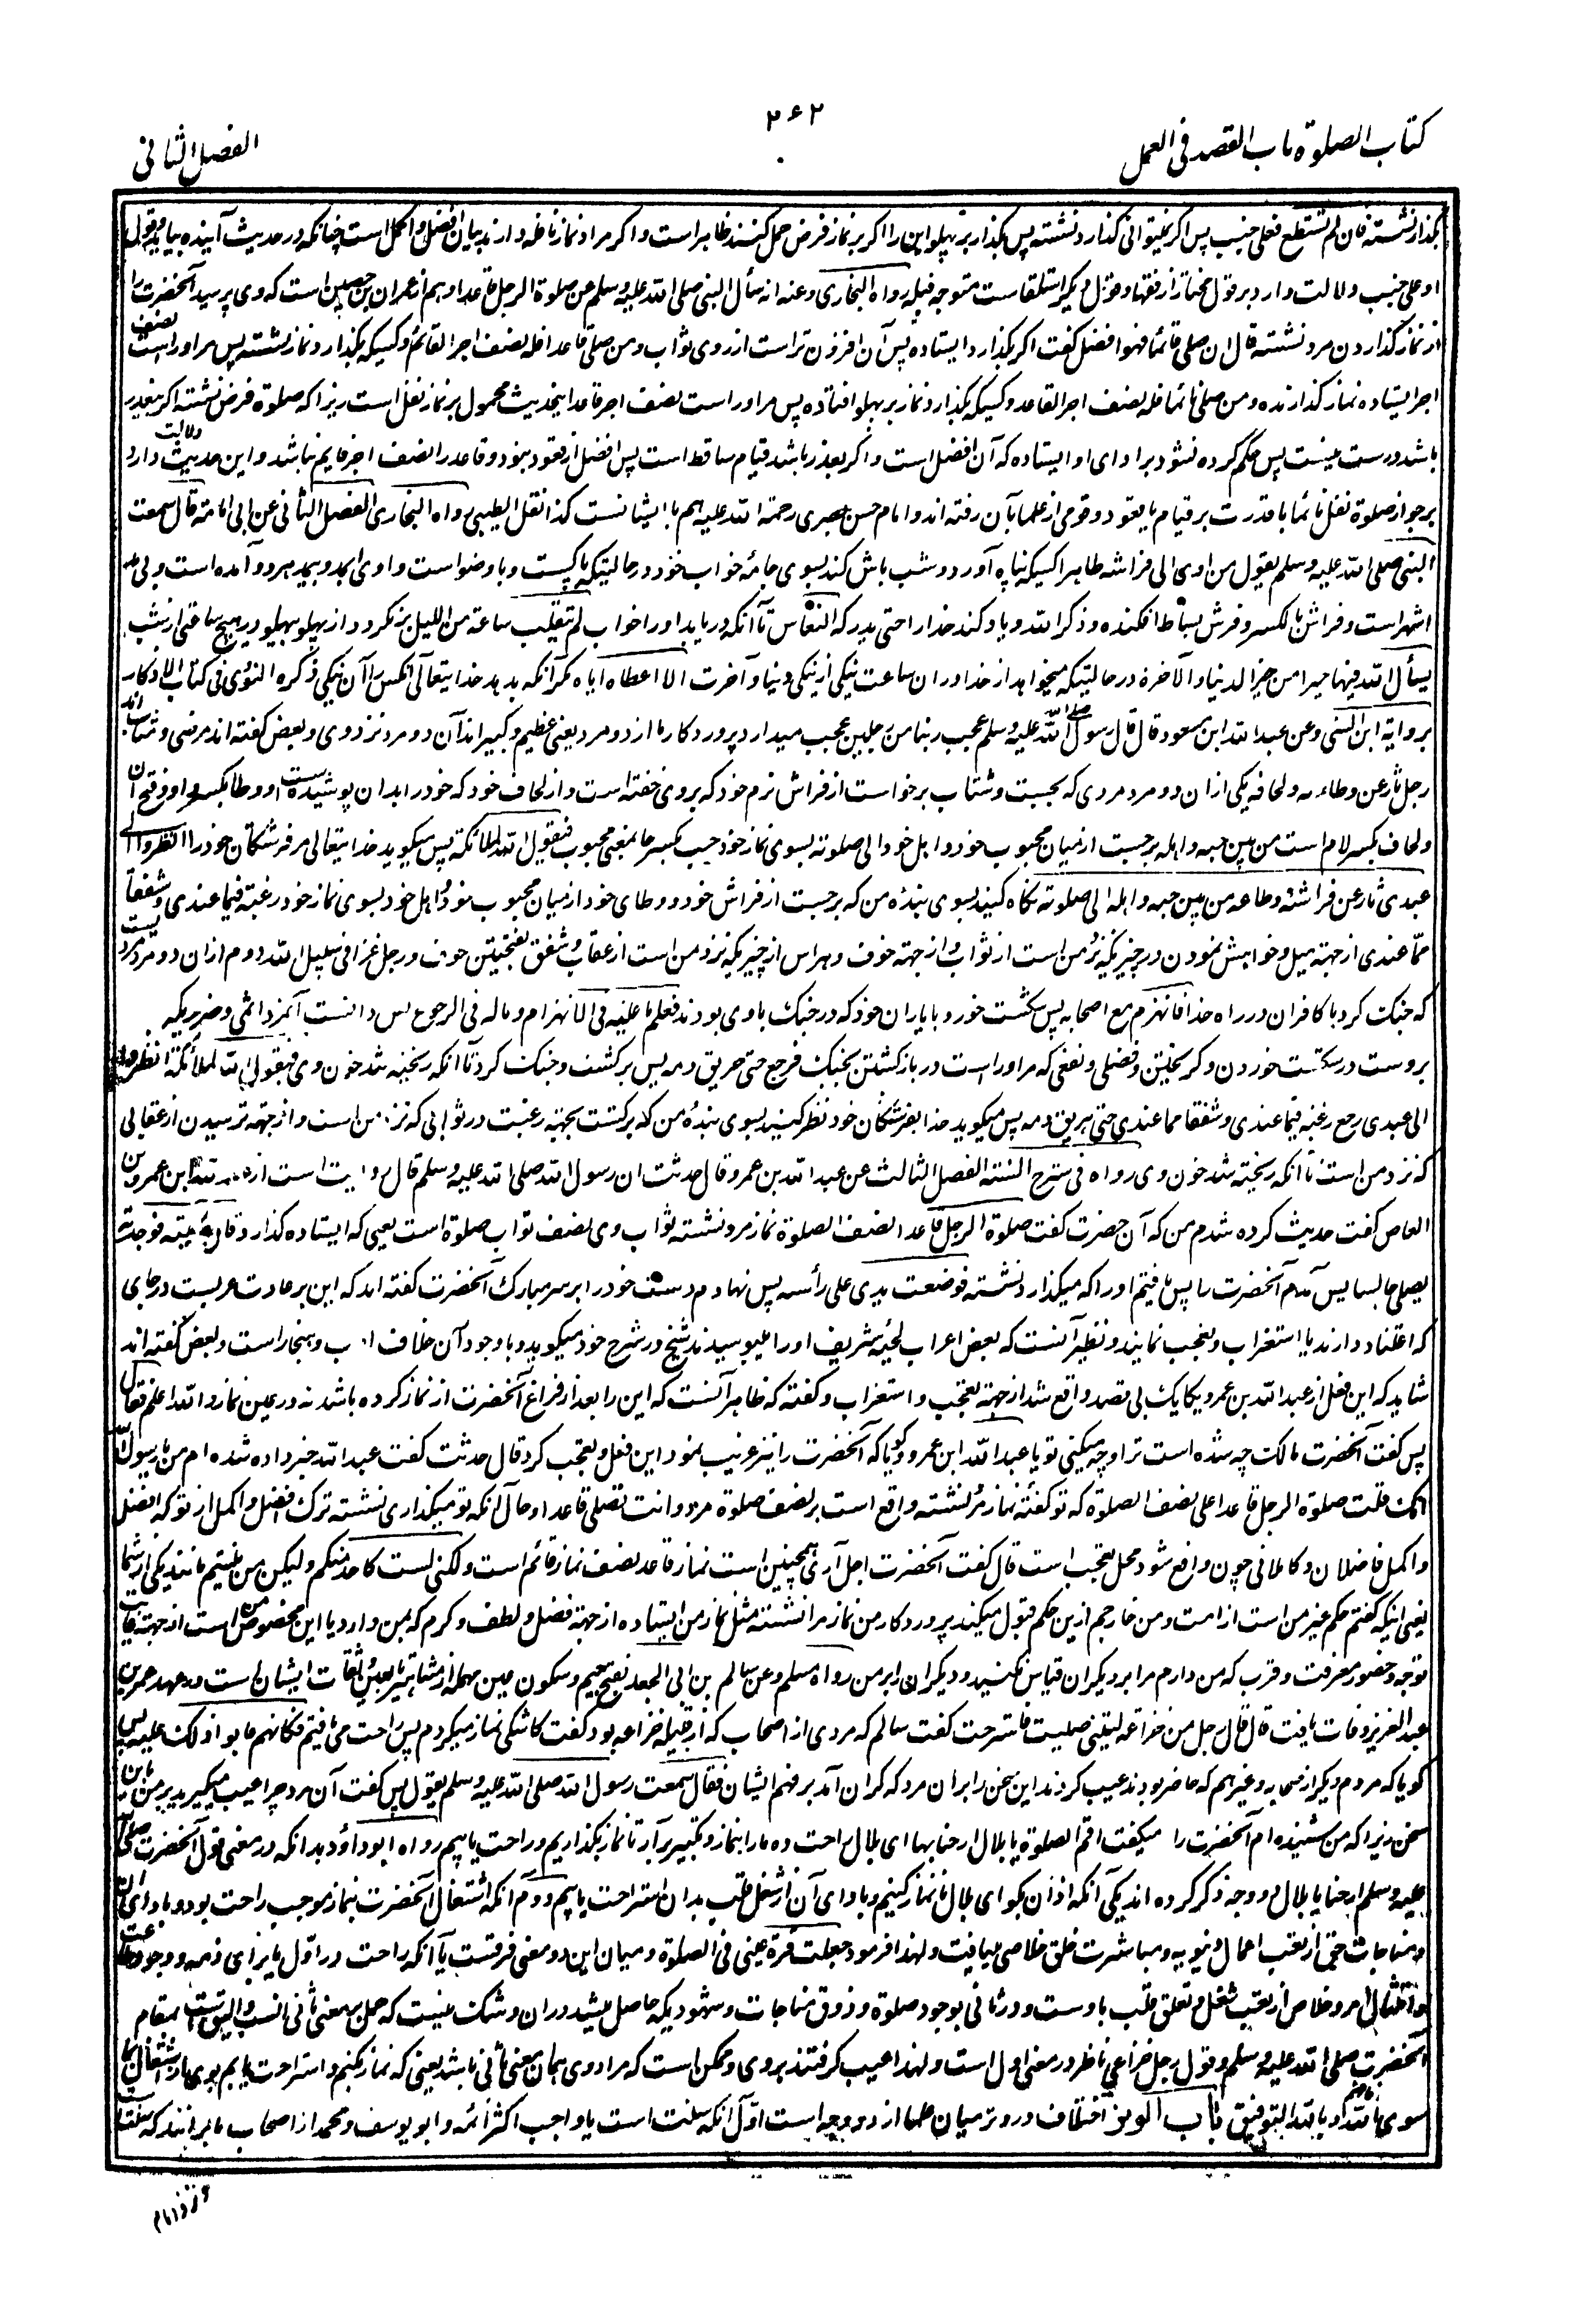 کتاب الصلوة باب القصد فی العمل
۲۶۲
الفصل الثانی
بگذار نشسته فان لم تستطع فعلی جنب پس اگر نمیتوانی گذارد نشسته پس بگذار بر پهلو این را اگر بر نماز فرض حمل کنند ظاهر است و اگر مراد نماز نافله دارند بیان افضل و اکمل است چنانکه در حدیث آینده بیاید و قوله
او علی جنب دلالت دارد بر قول مختار از فقها و قول دیگر استلقا ست متوجه قبله رواه البخاری وعنه انه سأل النبی صلی الله علیه وسلم عن صلوة الرجل قاعدا و هم از عمران بن حصین است که وی پرسید آنحضرت را
از نماز گذاردن مرد نشسته قال ان صلی قائما فهو افضل گفت اگر بگذارد ایستاده پس آن افزون تر است از روی ثواب و من صلی قاعدا فله نصف اجر القائم و کسیکه بگذارد نماز نشسته پس مر او راست نصف
اجر ایستاده نماز گذارنده و من صلی نائما فله نصف اجر القاعد و کسیکه بگذارد نماز بر پهلو افتاده پس مر او راست نصف اجر قاعد اینحدیث محمول بر نماز نفل است زیرا که صلوة فرض نشسته اگر بیعذر
باشد درست نیست پس حکم کرده نشود بر ادای او ایستاده که آن افضل است و اگر بعذر باشد قیام ساقط است پس افضل از قعود نبود و قاعد را نصف اجر قایم نباشد و این حدیث دلالت دارد
بر جواز صلوة نفل نائما با قدرت بر قیام یا قعود و قومی از علما بآن رفته اند و امام حسن بصری رحمة الله علیه هم با ایشانست کذا نقل الطیبی رواه البخاری الفصل الثانی عن ابی امامة قال سمعت
النبی صلی الله علیه وسلم یقول من اوی الی فراشه طاهرا کسیکه پناه آورد و شب باش کند بسوی جامۀ خواب خود در حالیتیکه پاکست و با وضو است و اوی بمد و بیمد هر دو آمده است و بی مد
اشهر است و فراش بالکسر و فرش بساط افکنده و ذکر الله و یاد کند خدا را حتی یدرکه النعاس تا آنکه دریابد او را خواب لم یتقلب ساعة من اللیل نگردد از پهلو بپهلو در هیچ ساعتی از شب
یسأل الله فیها خیرا من خیر الدنیا والآخرة در حالتیکه میخواهد از خدا در ان ساعت نیکی از نیکی دنیا و آخرت الا اعطاه ایاه مگر آنکه بدهد خدایتعالی آنکس را آن نیکی ذکره النووی فی کتاب الاذکار
بروایة ابن السنی وعن عبد الله ابن مسعود قال قال رسول الله صلی الله علیه وسلم عجب ربنا من رجلین عجب میدارد پروردگار ما از دو مرد یعنی عظیم و کبیر اند آن دو مرد نزد وی و بعض گفته اند مرضی و مثاب اند
رجل ثار عن وطائه ولحافه یکی از ان دو مرد مردی که بجست و شتاب برخاست از فراش نرم خود که بر وی خفته است و از لحاف خود که خود را بدان پوشیده است و وطا بکسر واو و فتح آن
ولحاف بکسر لام است من بین حبه واهله برجست از میان محبوب خود و اهل خود الی صلوته بسوی نماز خود حب بکسر حا بمعنی محبوب فیقول الله لملائکته پس میگوید خدایتعالی مر فرشتگان خود را انظروا الی
عبدی ثار عن فراشه ووطائه من بین حبه واهله الی صلوته نگاه کنید بسوی بندۀ من که برجست از فراش خود و وطای خود از میان محبوب خود و اهل خود بسوی نماز خود رغبة فیما عندی وشفقا
مما عندی از جهت میل و خواهش نمودن در چیزیکه نزد من است از ثواب و از جهة خوف و هراس از چیزیکه نزد من است از عقاب و شفق بفتحتین خوف ورجل غزا فی سبیل الله دوم ازان دو مرد مردیست
که جنگ کرد با کافران در راه خدا فانهزم مع اصحابه پس شکست خورد با یاران خود که در جنگ با وی بودند فعلم ما علیه فی الانهزام وماله فی الرجوع پس دانست آن مرد اثمی و ضرریکه
بر وست در شکست خوردن و گریختن و فضلی و نفعی که مر او راست در بازگشتن بجنگ فرجع حتی هریق دمه پس برگشت و جنگ کرد تا آنکه ریخته شد خون وی فیقول الله لملائکته انظروا
الی عبدی رجع رغبة فیما عندی وشفقا مما عندی حتی هریق دمه پس میگوید خدا بفرشتگان خود نظر کنید بسوی بندۀ من که برگشت بجهة رغبت در ثوابی که نزد من است و از جهة ترسیدن از عقابی
که نزد من است تا آنکه ریخته شد خون وی رواه فی شرح السنة الفصل الثالث عن عبد الله بن عمرو قال حدثت ان رسول الله صلی الله علیه وسلم قال روایت است از عبد الله ابن عمرو بن
العاص گفت حدیث کرده شدم من که آن حضرت گفت صلوة الرجل قاعدا نصف الصلوة نماز مرد نشسته ثواب وی نصف ثواب صلوة است یعنی که ایستاده گذارد قال فأتیته فوجدته
یصلی جالسا پس آمدم آنحضرت را پس یافتم او را که میگذارد نشسته فوضعت یدی علی رأسه پس نهادم دست خود را بر سر مبارک آنحضرت گفته اند که این بر عادت عربست در جای
که اعتناد دارند یا استغراب و تعجب نمایند و نظیر آنست که بعض اعراب لحیۀ شریف او را میبوسیدند شیخ در شرح خود میگوید و با وجود آن خلاف ادب و هنجار است و بعض گفته اند
شاید که این فعل از عبد الله بن عمرو یکایک بی قصد واقع شد از جهة تعجب و استغراب و گفته که ظاهر آنست که این را بعد از فراغ آنحضرت از نماز کرده باشد نه در عین نماز والله اعلم فقال
پس گفت آنحضرت مالک چه شده است ترا و چه میکنی تو یا عبد الله ابن عمرو گویا که آنحضرت را نیز غریب نمود این فعل و تعجب کرد قال حدثت گفت عبد الله خبر داده شده ام من یا رسول الله
انک قلت صلوة الرجل قاعدا علی نصف الصلوة که تو گفتۀ نماز مرد نشسته واقع است بر نصف صلوة مرد وانت تصلی قاعدا و حال آنکه تو میگذاری نشسته ترک افضل و اکمل از تو که افضل
و اکمل فاضلان و کاملانی چون واقع شود محل تعجب است قال گفت آنحضرت اجل آری همچنین است نماز قاعد نصف نماز قائم است ولکنی لست کاحد منکم ولیکن من نیستم مانند یکی از شما
یعنی اینکه گفتم حکم غیر من است از امت و من خارجم ازین حکم قبول میکند پروردگار من نماز مرا نشسته مثل نماز من ایستاده از جهة فضل و لطف و کرم که بمن دارد یا این مخصوص من است از جهة غایت
توجه و حضور معرفت و قرب که من دارم مرا بر دیگران قیاس نکنید و دیگران را بر من رواه مسلم وعن سالم بن ابی الجعد بفتح جیم و سکون عین مهمله از مشاهیر تابعین و ثقات ایشان است در عهد عمر بن
عبد العزیز وفات یافت قال قال رجل من خزاعة لیتنی صلیت فاسترحت گفت سالم که مردی از اصحاب که از قبیله خزاعه بود گفت کاشکی نماز میکردم پس راحت می یافتم فکانهم عابوا ذلک علیه پس
گویا که مردم دیگر از صحابه و غیرهم که حاضر بودند عیب کردند این سخن را بر ان مرد که گران آمد بر فهم ایشان فقال سمعت رسول الله صلی الله علیه وسلم یقول پس گفت آن مرد چرا عیب میگیرید بر من باین
سخن زیرا که من شنیده ام آنحضرت را میگفت اقم الصلوة یا بلال ارحنا بها ای بلال راحت ده ما را بنماز و تکبیر برآر تا نماز بگذاریم و راحت یابیم رواه ابو داؤد بدانکه در معنی قول آنحضرت صلی الله
علیه وسلم ارحنا یا بلال دو وجه ذکر کرده اند یکی آنکه اذان بگو ای بلال تا نماز کنیم و بادای آن از شغل قلب بدان استراحت یابیم و دوم آنکه اشتغال آنحضرت بنماز موجب راحت بود و بادای
و مناجات حق از تعب اعمال دنیویه و مباشرت خلق خلاصی مییافت و لهذا فرمود جعلت قرة عینی فی الصلوة و میان این دو معنی فرقست یا آنکه راحت در اول یا برای ذمه و وجود
و امتثال امر و خلاص از تعب شغل و تعلق قلب باوست و در ثانی بوجود صلوة و ذوق مناجات و شهودیکه حاصل میشد در ان و شک نیست که حمل بر معنی ثانی انسب و الیق است بمقام
آنحضرت صلی الله علیه وسلم و قول رجل خزاعی ناظر در معنی اول است و لهذا عیب گرفتند بر وی و ممکن است که مراد وی همان معنی ثانی باشد یعنی که نماز بکنم و استراحت یابم بوی از اشتغال بما
سوی الله و بالله التوفیق باب الوتر اختلاف در وتر میان علما از دو وجه است اول آنکه سنت است یا واجب اکثر ائمه و ابو یوسف و محمد از اصحاب ما برانند که سنت است